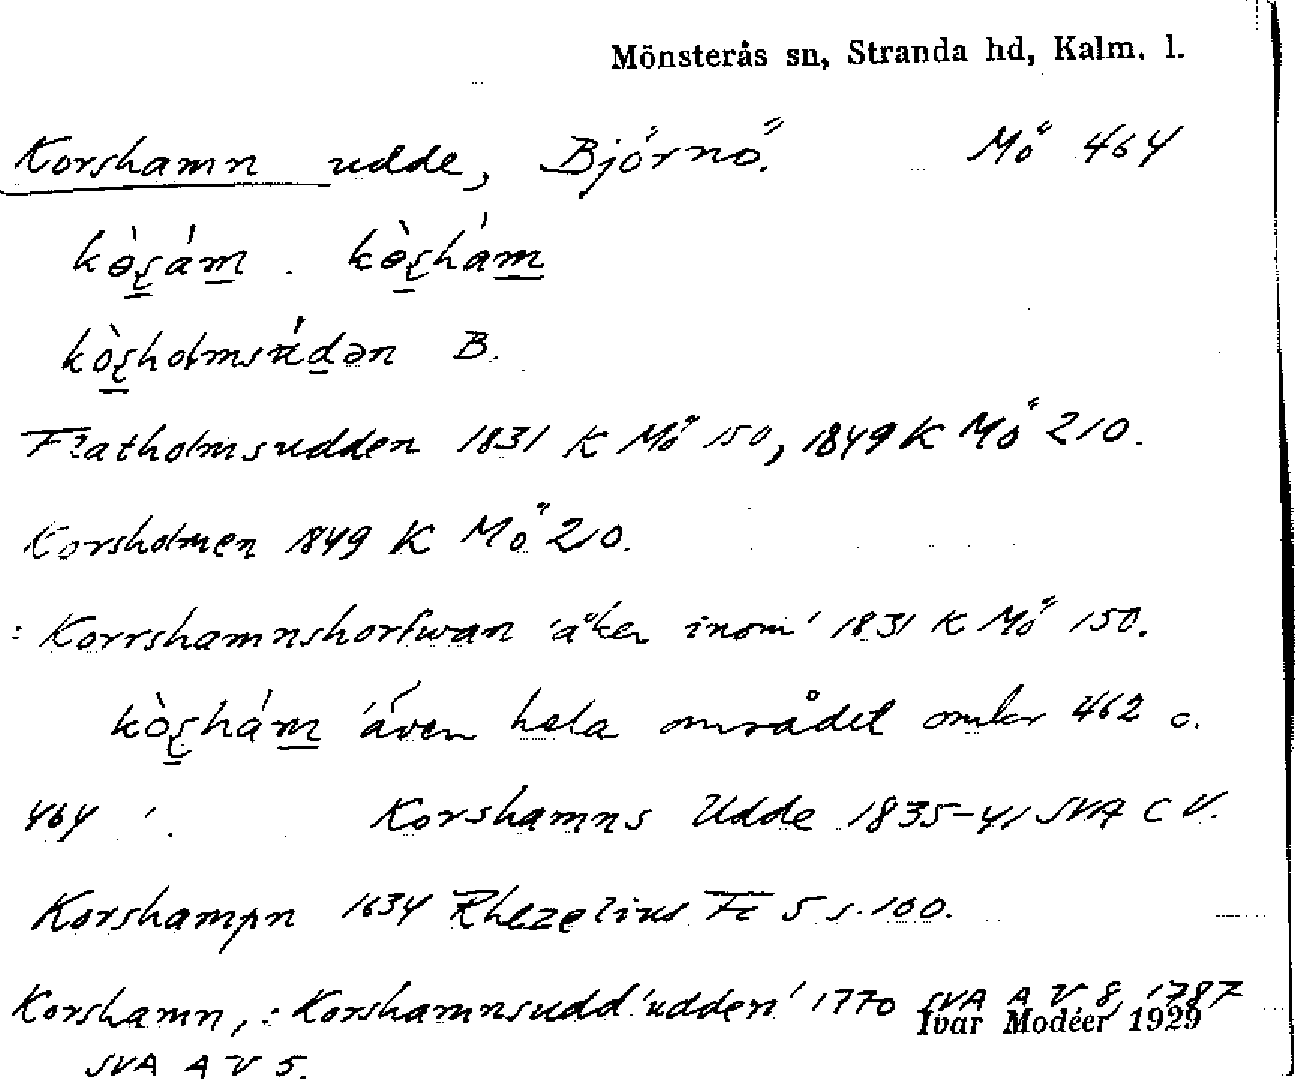 Mönsterås sn, Stranda hd, Kalm. l.
Korshamn udde, Björnö. Mö 464
kòʂám . kòʂhám
kòʂholmsúdən B.
Flatholmsudden 1831 K Mö 150, 1849 K Mö 210.
Korsholmen 1849 K Mö 210.
: Korrshamnshorfwan 'åker inom' 1831 K Mö 150.
kòʂhám 'även hela området omkr 462 o.
464 '. Korshamns Udde 1835-41 SVA C V.
Korshampn 1634 Rhezelius Fc 5 s. 100.
Korshamn, : Korshamnsudd 'udden' 1770 SVA A V 8, 1787
Ivar Modéer 1929
SVA A V 5.